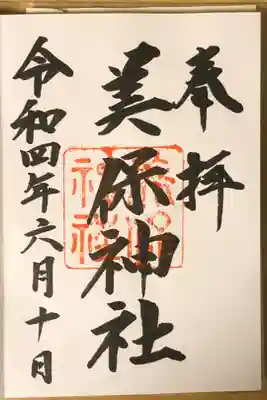 奉拝
美保神社
令和四年六月十日